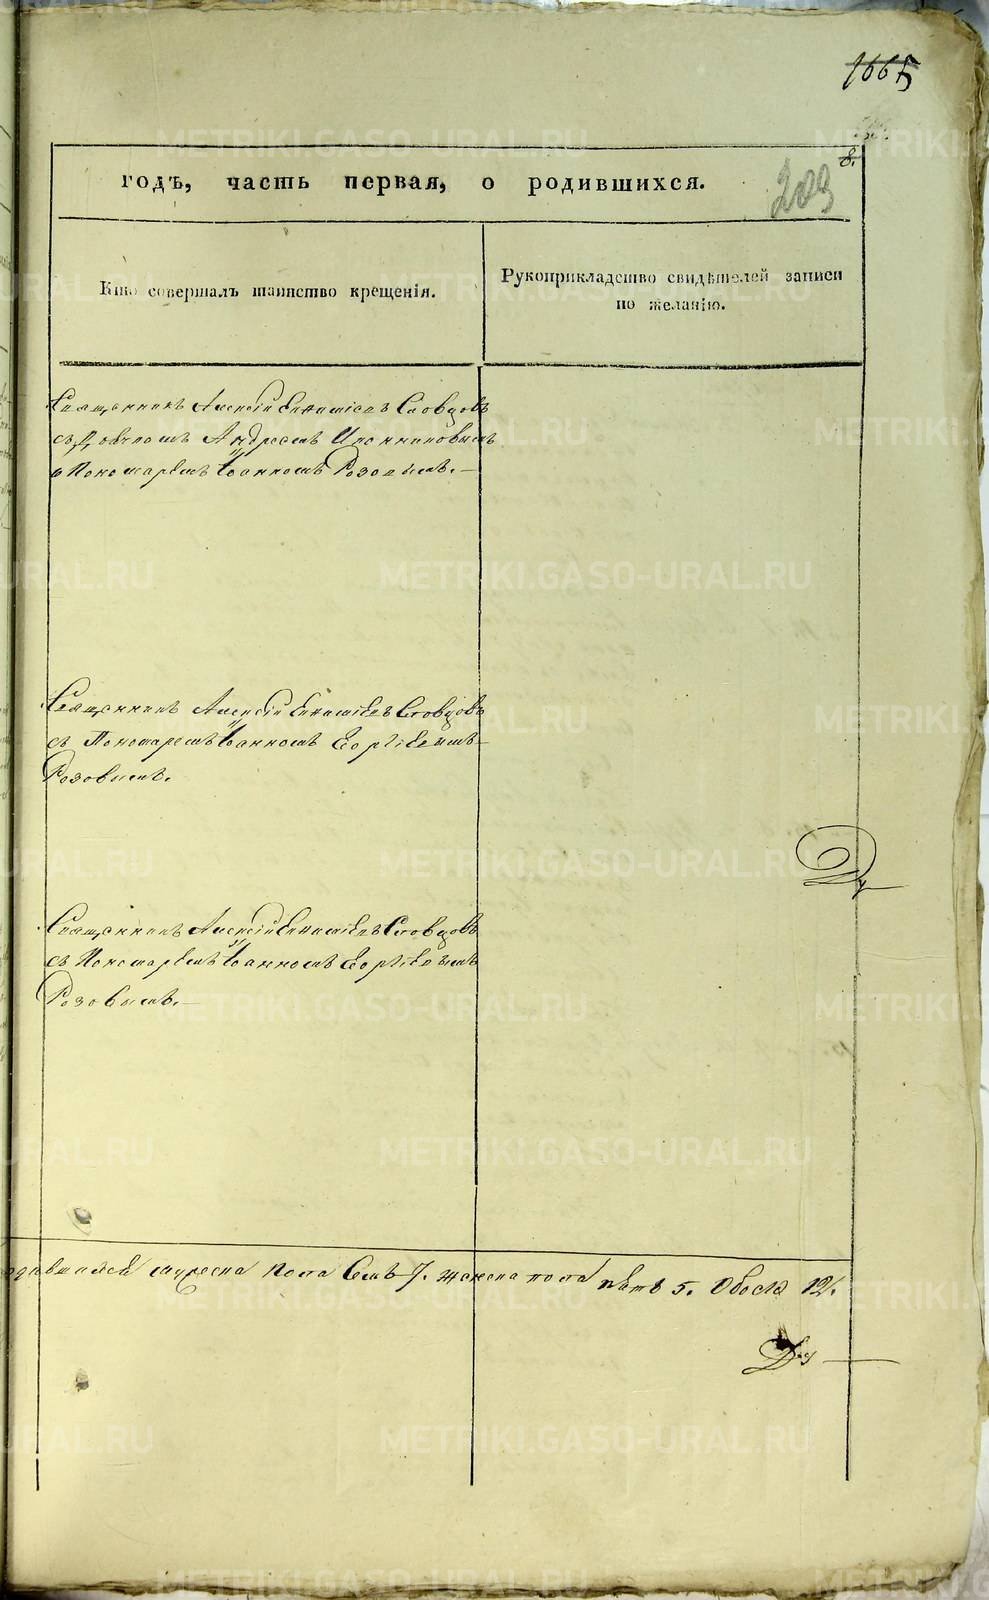 1665
8.
годъ, часть первая, о родившихся.
203
Кто совершалъ таинство крещенія.
Рукоприкладство свидѣтелей записи
по желанію.
Священникъ Алексій Словцовъ
съ Андреемъ
и Пономаремъ Іоанномъ Розовымъ.
Священникъ Алексій Словцовъ
съ Пономаремъ Іоанномъ
Розовымъ.
Священникъ Алексій Словцовъ
съ Пономаремъ Іоанномъ
Розовымъ.
мужеска пола семь 7. женска пола пять 5. Обоего 12.
METRIKI.GASO-URAL.RU